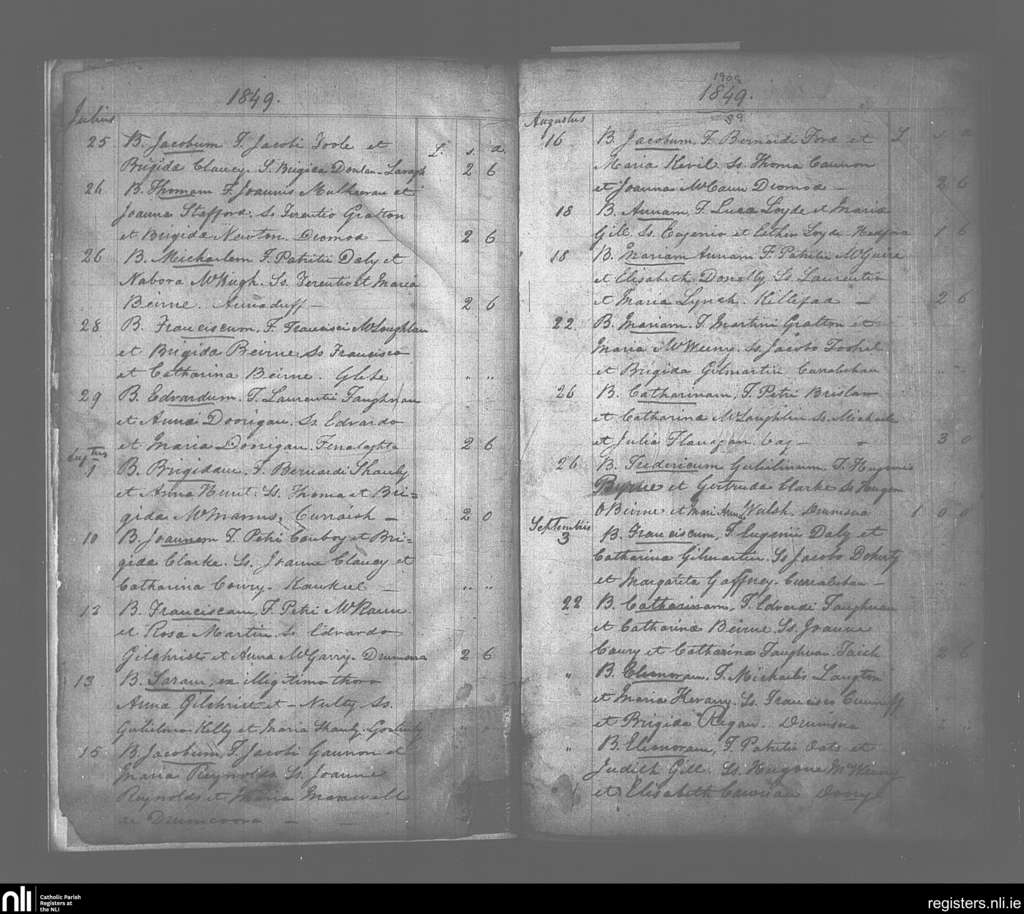 1849.
Julius
25 B. Jacobum F. Jacobi Toole et £. s. d
Brigida Clancy. S. Brigida Donlan. 2 6
26 B. Thomam F. Joannis Mulheran et
Joanna Stafford. Ss Terentio Gratton
et Brigida Newton. Dromod — 2 6
26 B. Michaelem F. Patritii Daly et
Nabora McHugh. Ss. Terentio et Maria
Beirne. Annaduff — 2 6
28 B. Franciscum. F. Francisci McLoughlan
et Brigida Beirne Ss Francisco
et Catharina Beirne. Glebe " "
29 B. Edvardum. F. Laurentii Faughnan
et Anna Dorigan. Ss Edvardo
et Maria Dorigan. 2 6
1 B. Brigidam. F. Bernardi Shanly
et Anna Hunt. Ss. Thoma et Bri=
gida McManus. — 2 0
10 B. Joannem F. Petri Conboy et Bri-
gida Clarke. Ss. Joanne Clancy et
Catharina Conry. " "
12 B. Franciscam, F. Petri
et Rosa Martin. Ss Edvardo
Gilchrist et Anna McGarry. Drumsna 2 6
13 B. Saram, ex illegitimo thoro
Anna Gilchrist et — Nulty. Ss.
Gulielmo Kelly et Maria Shanly.
15 B. Jacobum, F. Jacobi Gannon et
Maria Reynolds Ss. Joanne
Reynolds et Maria
de —
1909
1849.
59
Augustus
16 B. Jacobum F. Bernardi Ford et £ s d
Maria Kevil Ss. Thoma Cannon
et Joanna McCann Dromod — 2 6
18 B. Annam, F. Luca Loyde et Maria
Gill. Ss. Eugenio et Esther Loyde 1 6
18 B. Mariam Annam F. Patritii McGuire
et Elisabeth Donelly Ss. Laurentio
et Maria Lynch. — 2 6
22 B. Mariam. F. Martini Gratton et
Maria Ss. Jacobo
et Brigida Gilmartin
26 B. Catharinam, F. Petri Breslan
et Catharina McLaughlin Ss. Michaele
et Julia Flanagan. — 3 0
26 B. Fredericum Gulielmum. F. Hugonis
Byrne et Gertruda Clarke Ss Hugone
O Beirne et Mari Ann Walsh. Drumsna 1 0 0
Septembris
3 B. Franciscum, F. Eugenii Daly et
Catharina Gilmartin. Ss Jacobo Doherty
et Margarita Gaffney. —
22 B. Catharinam, F. Edvardi Faughnan
et Catharina Beirne. Ss. Joanne
Conry et Catharina Faughnan. 2 6
" B. Elenoram. F. Michaelis Langton
et Maria Ss. Francisco
et Brigida Regan. Drumsna
" B. Elenoram, F. Patritii Oats et
Judith Gill. Ss. Hugone
et Elisabeth
nli Catholic Parish
Registers at
the NLI
registers.nli.ie